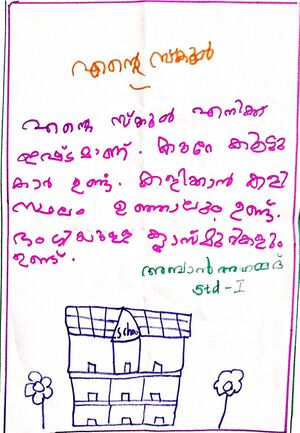 എന്റെ സ്കൂൾ
എന്റെ സ്കൂൾ എനിക്ക്
ഇഷ്ടമാണ്. കുറേ കൂട്ടു
കാർ ഉണ്ട്. കളിക്കാൻ കളി
സ്ഥലം ഉഞ്ഞാലും ഉണ്ട്.
ഭംഗിയുള്ള ക്ലാസ്മുറികളും
ഉണ്ട്.
അബാൻ അഹമ്മദ്
Std - I